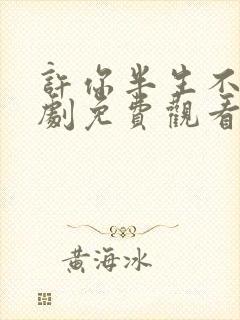 許你半生不
劇免費觀看
黃海冰